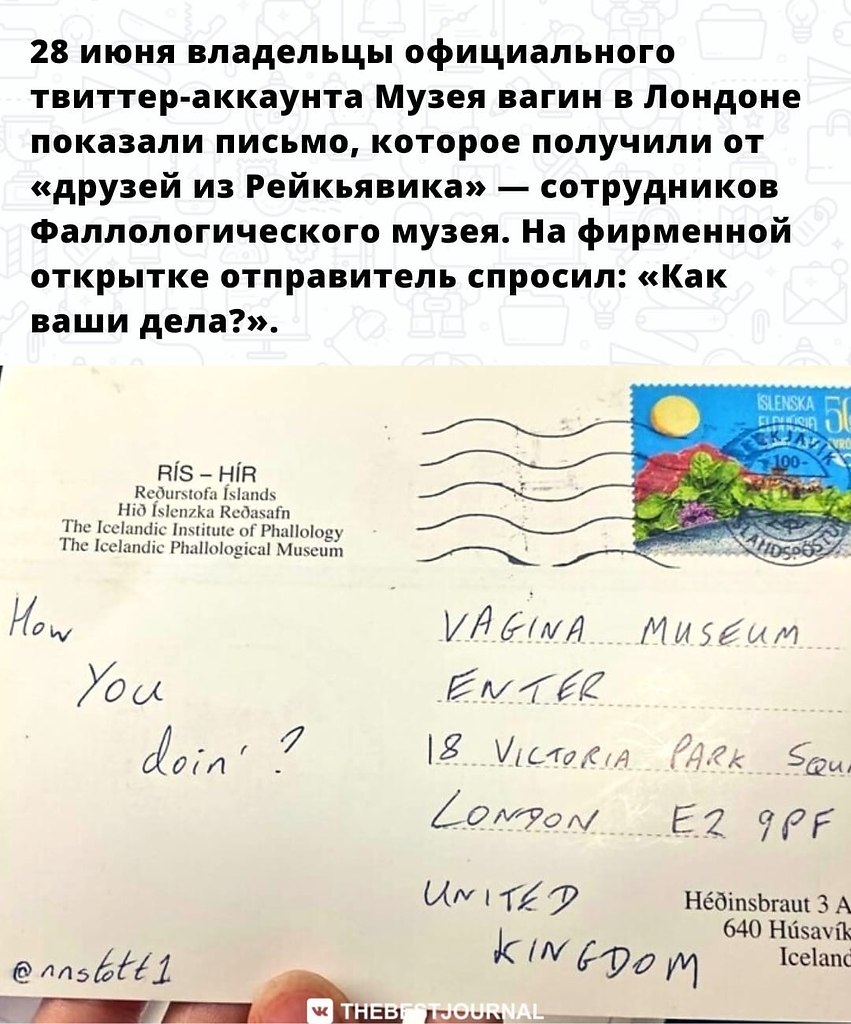 28 июня владельцы официального
твиттер-аккаунта Музея вагин в Лондоне
показали письмо, которое получили от
«друзей из Рейкьявика» — сотрудников
Фаллологического музея. На фирменной
открытке отправитель спросил: «Как
ваши дела?».
ÍSLENSKA
50
-100-
ÍSLANDSPÓSTUR
RÍS – HÍR
Reðurstofa Íslands
Hið Íslenzka Reðasafn
The Icelandic Institute of Phallology
The Icelandic Phallological Museum
How
You
doin' ?
VAGINA MUSEUM
ENTER
18 VICTORIA PARK SQU
LONDON E2 9PF
UNITED
KINGDOM
Héðinsbraut 3 A
640 Húsavík
Iceland
@nnstott1
THEBESTJOURNAL